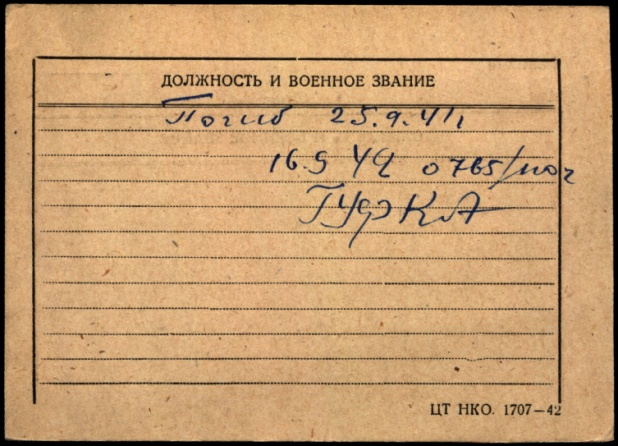 ДОЛЖНОСТЬ И ВОЕННОЕ ЗВАНИЕ
Погиб 25.9.41
16.5 42 0765/
ГУФКА
ЦТ НКО. 1707—42